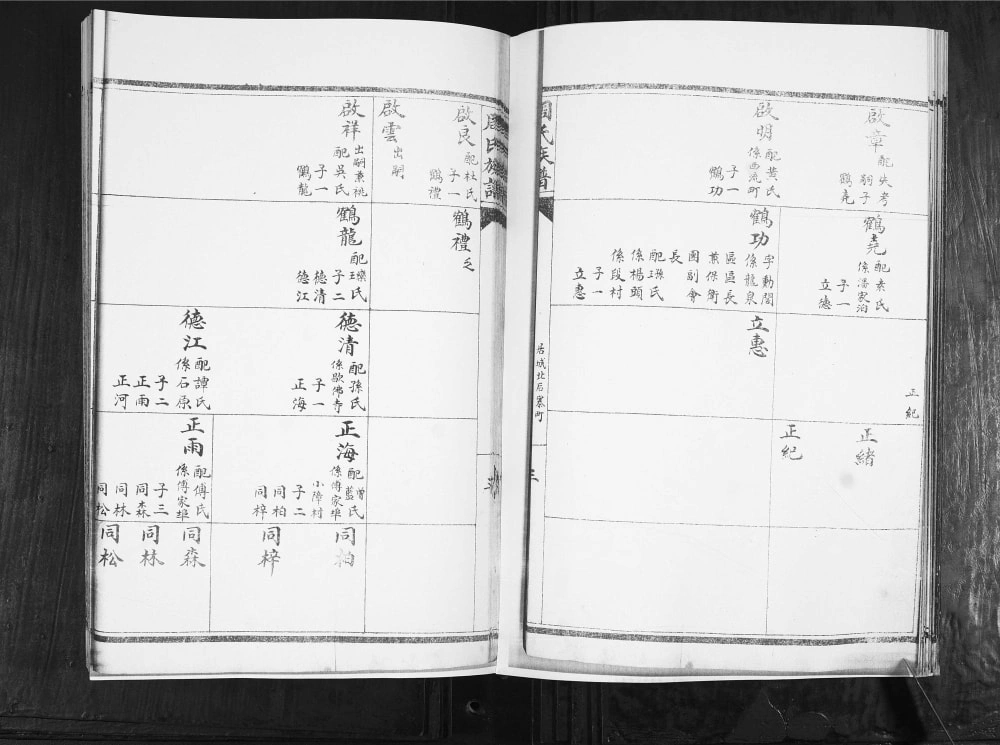 啟章
配失考
嗣子
鶴堯
啟明
配黄氏
係西流町
子一
鶴功
鶴堯
配袁氏
係潘家泊
子一
立德
鶴功
字勳閣
係龍泉
區區長
黨保衛
團副會
長
配孫氏
係楊頭
係段村
子一
立惠
立惠
正紀
正緒
正紀
氏族譜
居城北后寨町
氏族譜
啟良
配杜氏
子一
鶴禮
啟雲
出嗣
啟祥
出嗣兼祧
配吳氏
子一
鶴龍
鶴禮
乏
鶴龍
子二
德清
德江
德清
配孫氏
係歇佛寺
子一
正海
德江
配譚氏
係石原
子二
正雨
正河
正海
配藍氏
係傅家埠
小障村
子二
同柏
同梓
正雨
配傅氏
係傅家埠
子三
同森
同林
同松
同柏
同梓
同森
同林
同松